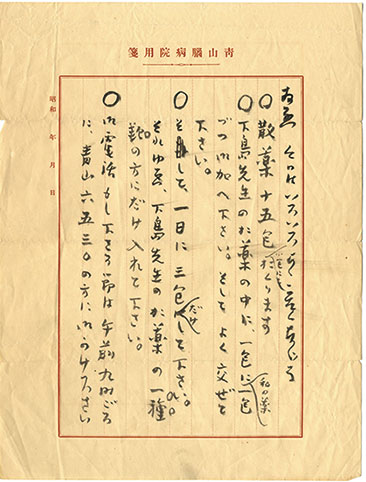 青山脳病院用箋
昭和 年 月 日
〇散薬十五包おくります
〇下島先生のお薬の中に、一包に一包
私の薬
づつ御加へ下さい。そしてよく交ぜて
下さい。
〇そして、一日に三包だけにして下さい。
それゆゑ、下島先生のお薬の一種
類の方にだけ入れて下さい。
〇御電話もし下さる節は午前九時ごろ
に、青山六五三〇の方に御かけ下さい